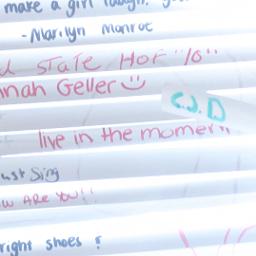 make a girl laugh.
-Marilyn Monroe
State Hof "10"
nnah Geller
C.J.D
live in the moment
ust Sing
w are you!!
right shoes